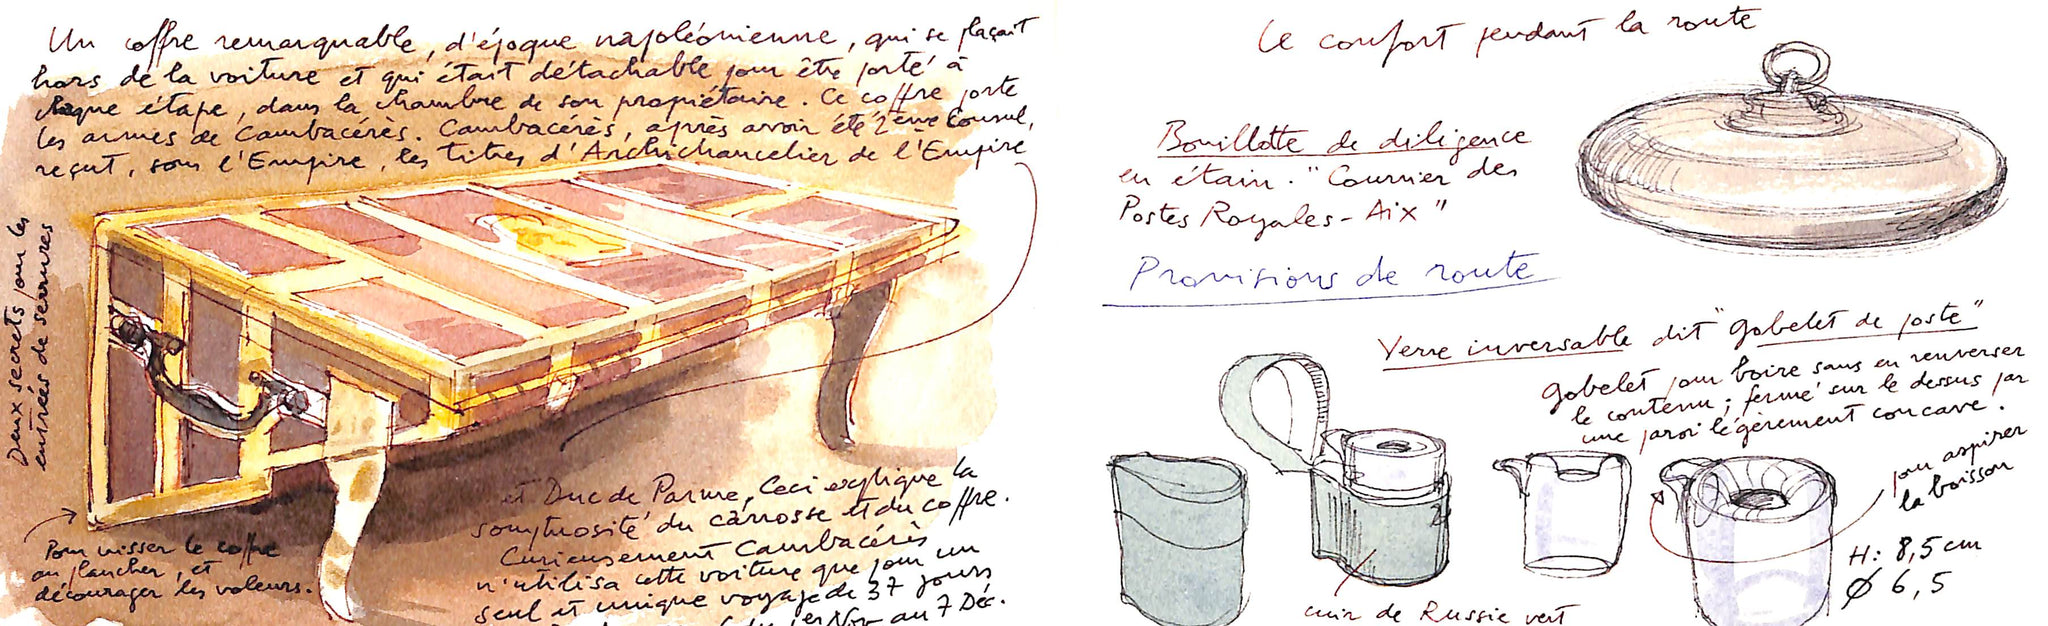 Un coffre remarquable, d'époque napoléonienne, qui se plaçait
hors de la voiture et qui était détachable pour être porté à
chaque étape, dans la chambre de son propiétaire. Ce coffre porte
les armes de Cambacérès. Cambacérès, après avoir été 2ème Consul,
reçut, sous l'Empire, les titres d'Archichancelier de l'Empire
et Duc de Parme, Ceci explique la
somptuosité du carrosse et du coffre.
Curieusement Cambacérès
n'utilisa cette voiture que pour un
seul et unique voyage de 37 jours
1er Nov au 7 Déc.
Deux secrets pour les
entrées de serrures
Pour visser le coffre
au plancher, et
décourager les voleurs.
Le confort pendant la route
Bouillotte de diligence
en étain. "Courrier des
Postes Royales - Aix"
Provisions de route
Verre inversable dit "gobelet de poste"
gobelet pour boire sans en renverser
le contenu; fermé sur le dessus par
une paroi légèrement concave.
pour aspirer
la boisson
H: 8,5 cm
Ø 6,5
cuir de Russie vert